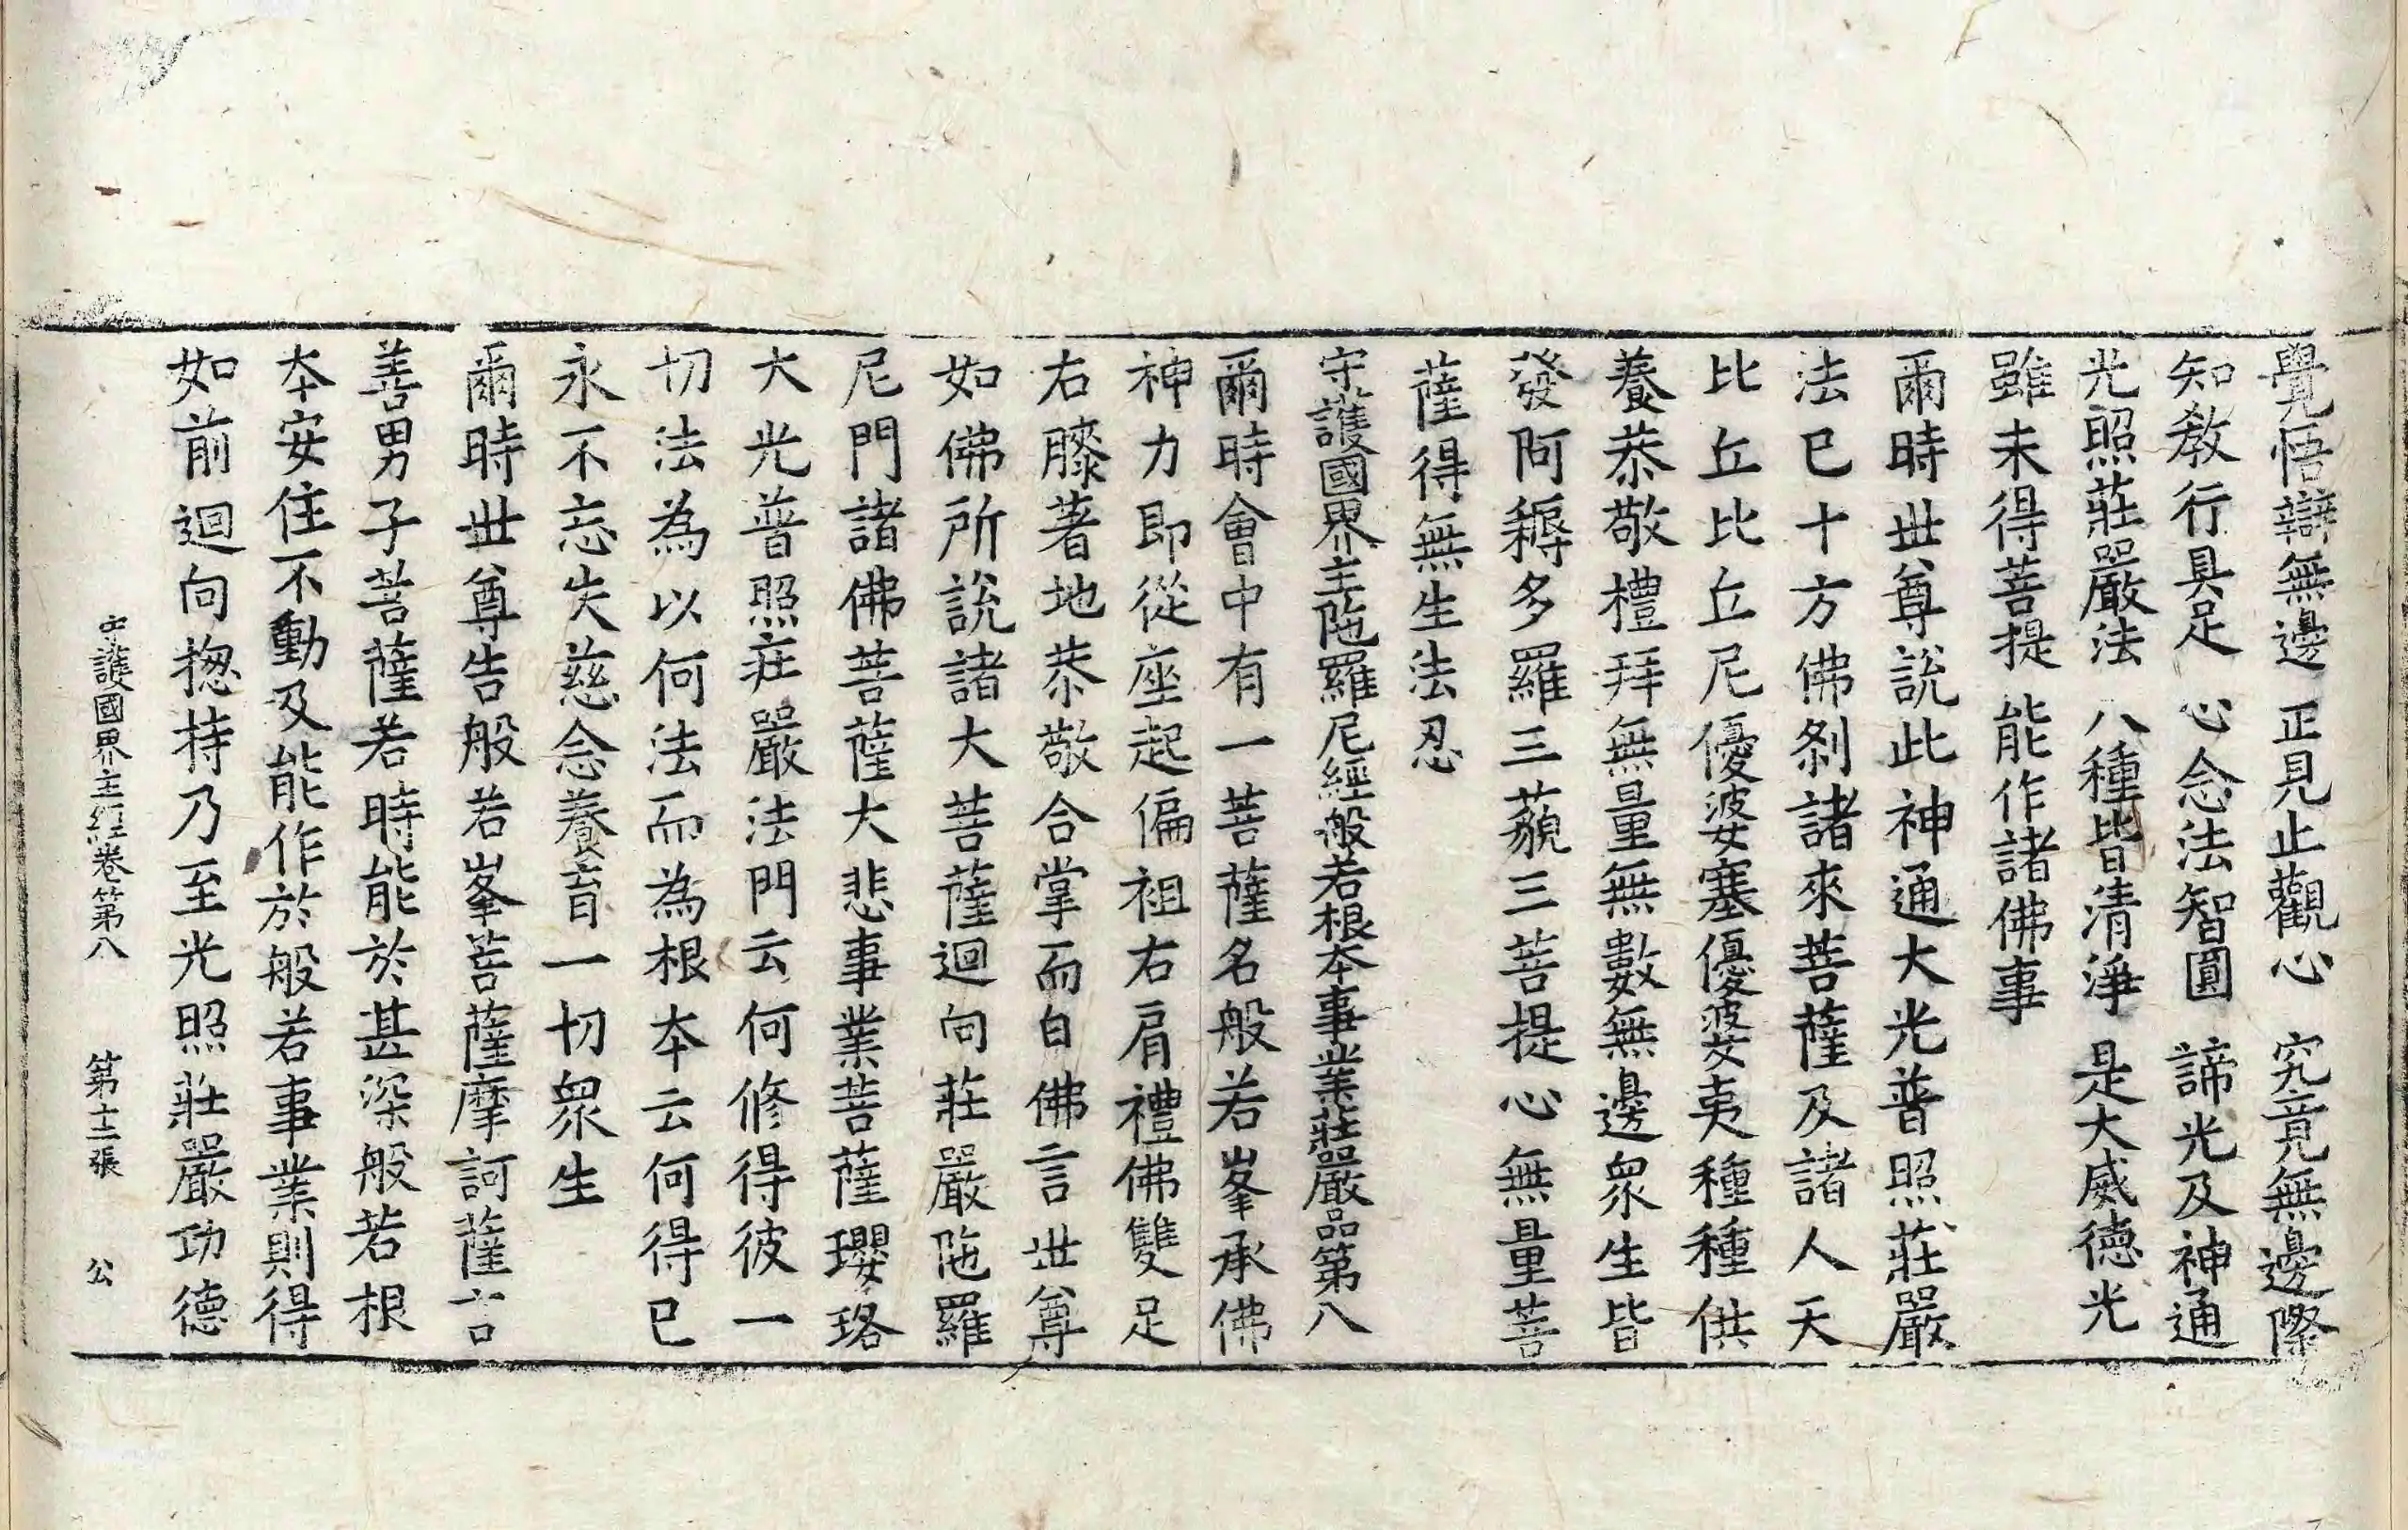 覺悟辯無邊 正見止觀心 究竟無邊際
知教行具足 心念法智圓 諦光及神通
光照莊嚴法 八種皆清淨 是大威德光
雖未得菩提 能作諸佛事
爾時世尊說此神通大光普照莊嚴
法已十方佛剎諸來菩薩及諸人天
比丘比丘尼優婆塞優婆夷種種供
養恭敬禮拜無量無數無邊衆生皆
發阿耨多羅三藐三菩提心無量菩
薩得無生法忍
守護國界主陁羅尼經般若根本事業莊嚴品第八
爾時會中有一菩薩名般若峯承佛
神力即從座起偏袒右肩禮佛雙足
右膝著地恭敬合掌而白佛言世尊
如佛所說諸大菩薩迴向莊嚴陁羅
尼門諸佛菩薩大悲事業菩薩瓔珞
大光普照莊嚴法門云何修得彼一
切法為以何法而為根本云何得已
永不忘失慈念養育一切衆生
爾時世尊告般若峯菩薩摩訶薩言
善男子菩薩若時能於甚深般若根
本安住不動及能作於般若事業則得
如前迴向揔持乃至光照莊嚴功德
守護國界主經卷第八 第十二張 公